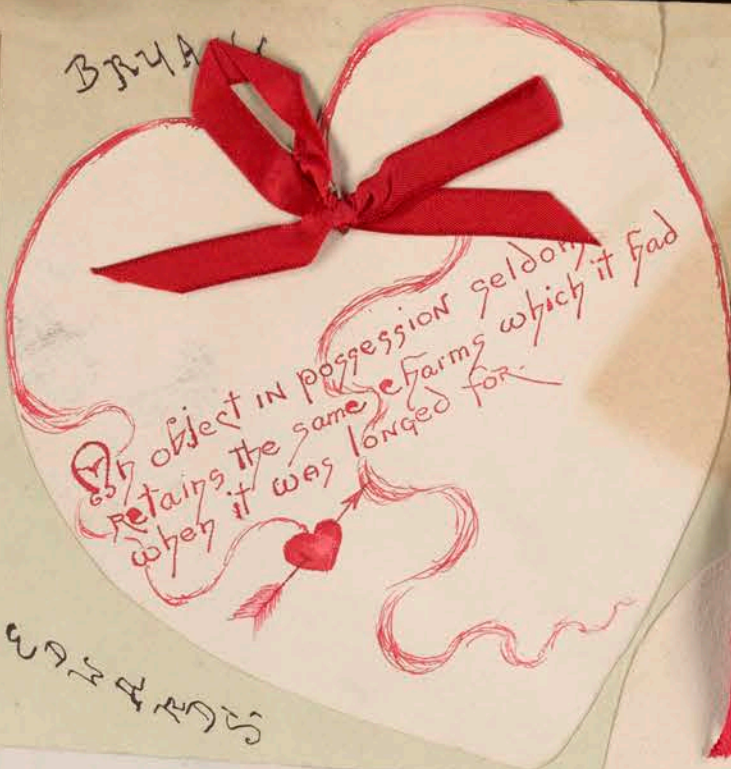 An object in possession seldom
retains the same charms which it had
when it was longed for.